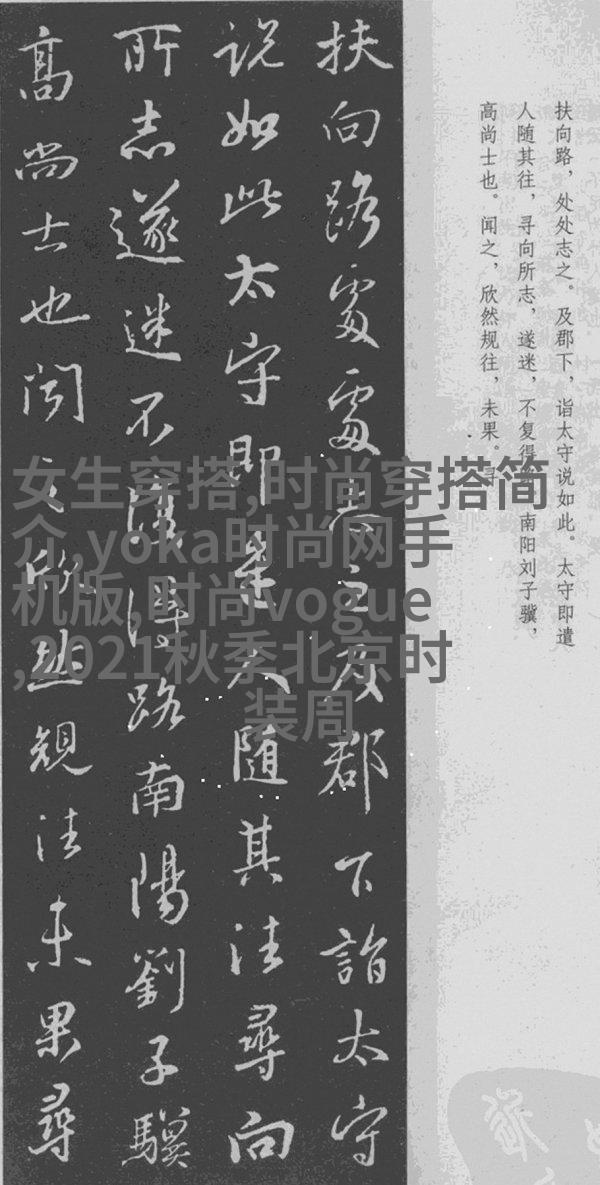 扶向路，处处志之。及郡下，诣太守说如此。太守即遣
人随其往，寻向所志，遂迷，不复得路。南阳刘子骥，
高尚士也。闻之，欣然规往，未果。寻
扶向路處處志之及郡下詣太守
説如此太守即遣人随其往尋向
所志遂迷不復得路南陽劉子驥
高尚士也聞之欣然規往未果尋
女生穿搭,时尚穿搭简
介,yoka时尚网手
机版,时尚vogue
,2021秋季北京时
装周